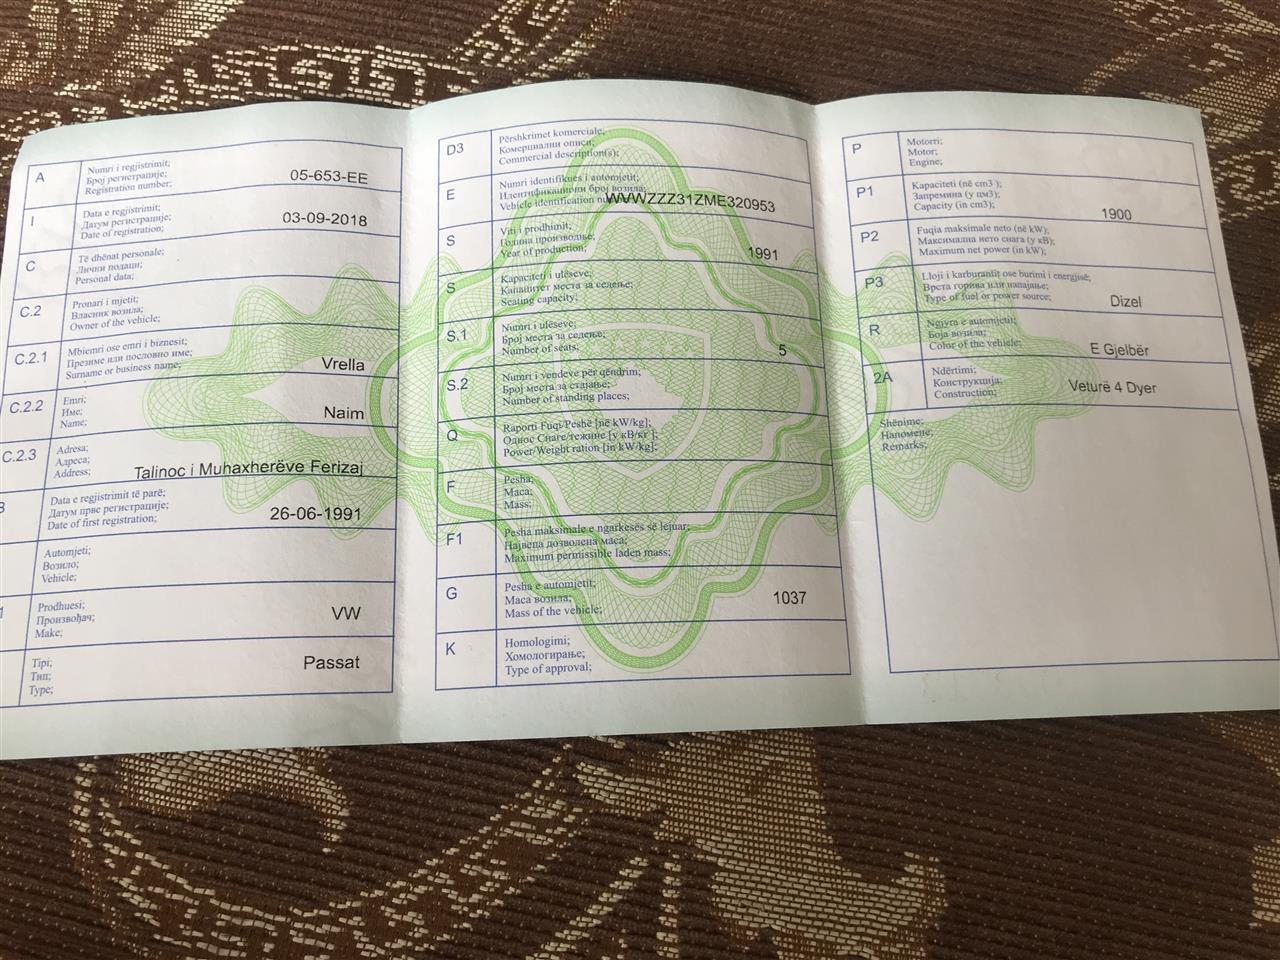 A
Numri i regjistrimit;
Број регистрације;
Registration number;
05-653-EE
I
Data e regjistrimit;
Датум регистрације;
Date of registration;
03-09-2018
C
Të dhënat personale;
Лични подаци;
Personal data;
C.2
Pronari i mjetit;
Власник возила;
Owner of the vehicle;
C.2.1
Mbiemri ose emri i biznesit;
Презиме или пословно име;
Surname or business name;
Vrella
C.2.2
Emri;
Име;
Name;
Naim
C.2.3
Adresa;
Адреса;
Address;
Talinoc i Muhaxherëve Ferizaj
Data e regjistrimit të parë;
Датум прве регистрације;
Date of first registration;
26-06-1991
Automjeti;
Возило;
Vehicle;
Prodhuesi;
Произвођач;
Make;
VW
Tipi;
Тип;
Type;
Passat
D3
Përshkrimet komerciale;
Комерцијални описи;
Commercial description(s);
E
Numri identifikues i automjetit;
Идентификациони број возила;
Vehicle identification
WVWZZZ31ZME320953
S
Viti i prodhimit;
Година производње;
Year of production;
1991
S
Kapaciteti i ulëseve;
Капацитет места за седење;
Seating capacity;
S.1
Numri i ulëseve;
Број места за седење;
Number of seats;
5
S.2
Numri i vendeve për qëndrim;
Број места за стајање;
Number of standing places;
Q
Raporti Fuqi/Peshë [në kW/kg];
Однос Снаге/тежине [у кВ/кг ];
Power/Weight ration [in kW/kg];
F
Pesha;
Маса;
Mass;
F1
Pesha maksimale e ngarkesës së lejuar;
Највећа дозвољена маса;
Maximum permissible laden mass;
G
Pesha e automjetit;
Маса возила;
Mass of the vehicle;
1037
K
Homologimi;
Хомологирање;
Type of approval;
P
Motorri;
Мотор;
Engine;
P1
Kapaciteti (në cm3 );
Запремина (у цм3);
Capacity (in cm3);
1900
P2
Fuqia maksimale neto (në kW);
Максимална нето снага (у кВ);
Maximum net power (in kW);
P3
Lloji i karburantit ose burimi i energjisë;
Врста горива или напајање;
Type of fuel or power source;
Dizel
R
Ngjyra e automjetit;
Боја возила;
Color of the vehicle;
E Gjelbër
2A
Ndërtimi;
Конструкција;
Construction;
Veturë 4 Dyer
Shënime;
Напомене;
Remarks;